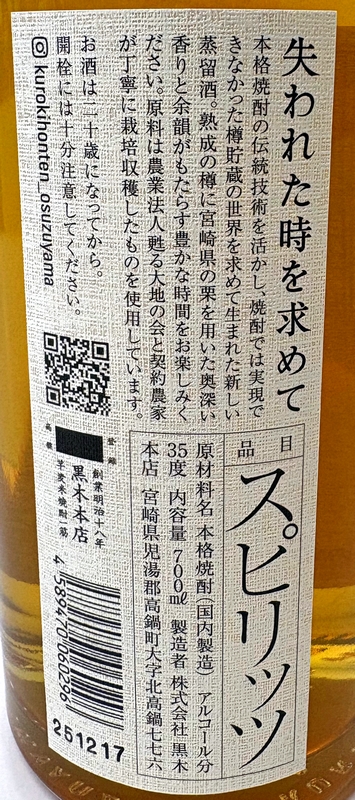 失われた時を求めて
本格焼酎の伝統技術を活かし、焼酎では実現で
きなかった樽貯蔵の世界を求めて生まれた新しい
蒸留酒。熟成の樽に宮崎県の栗を用いた奥深い
香りと余韻がもたらす豊かな時間をお楽しみく
ださい。原料は農業法人甦る大地の会と契約農家
が丁寧に栽培収穫したものを使用しています。
お酒は二十歳になってから。
開栓には十分注意してください。
kurokihonten_osuzuyama
品目
スピリッツ
原材料名 本格焼酎(国内製造) アルコール分
35度 内容量 700㎖ 製造者 株式会社 黒木
本店 宮崎県児湯郡高鍋町大字北高鍋七七六
登録
商標
創業明治十八年
黒木本店
芋麦米焼酎一筋
4 589470 060296
251217